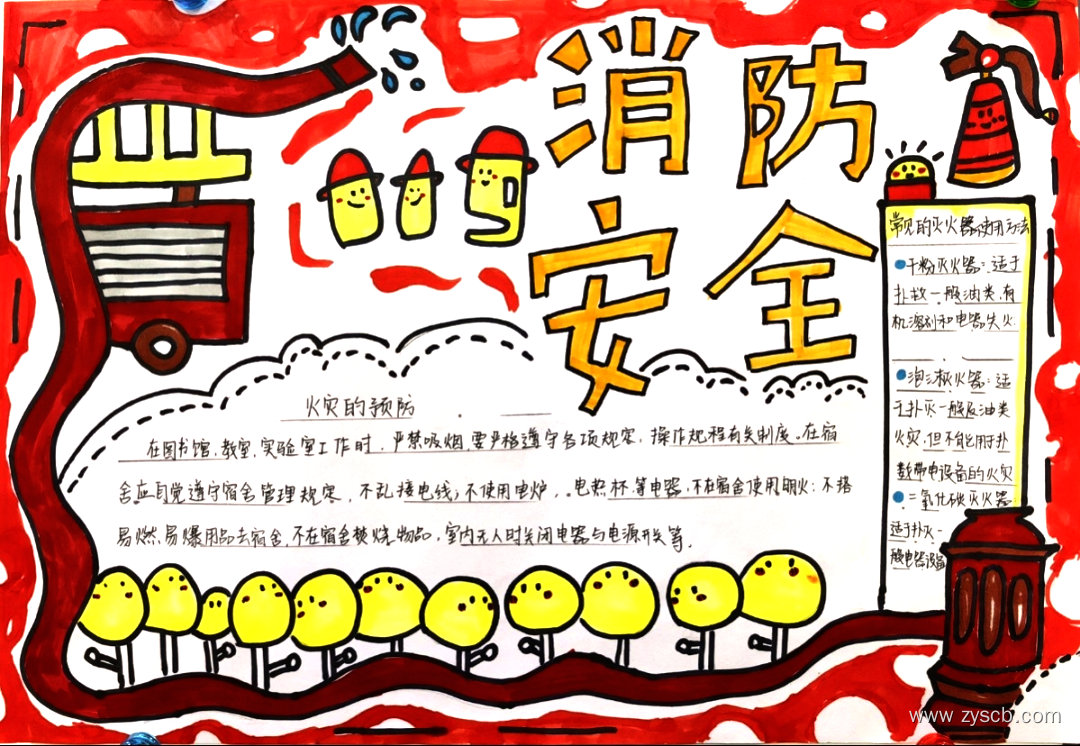 消防
安全
119
火灾的预防
在图书馆、教室、实验室工作时，严禁吸烟，要严格遵守各项规定，操作规程有关制度。在宿
舍应自觉遵守宿舍管理规定，不乱接电线；不使用电炉、电热杯等电器；不在宿舍使用明火；不搭
易燃、易爆用品去宿舍，不在宿舍焚烧物品，室内无人时关闭电器与电源开关等。
常见的灭火器使用方法
干粉灭火器：适于
扑救一般油类、有
机溶剂和电器失火
泡沫灭火器：适
于扑灭一般及油类
火灾，但不能用于扑
救带电设备的火灾
二氧化碳灭火器
适于扑灭一
般电器设备
www.zyscb.com